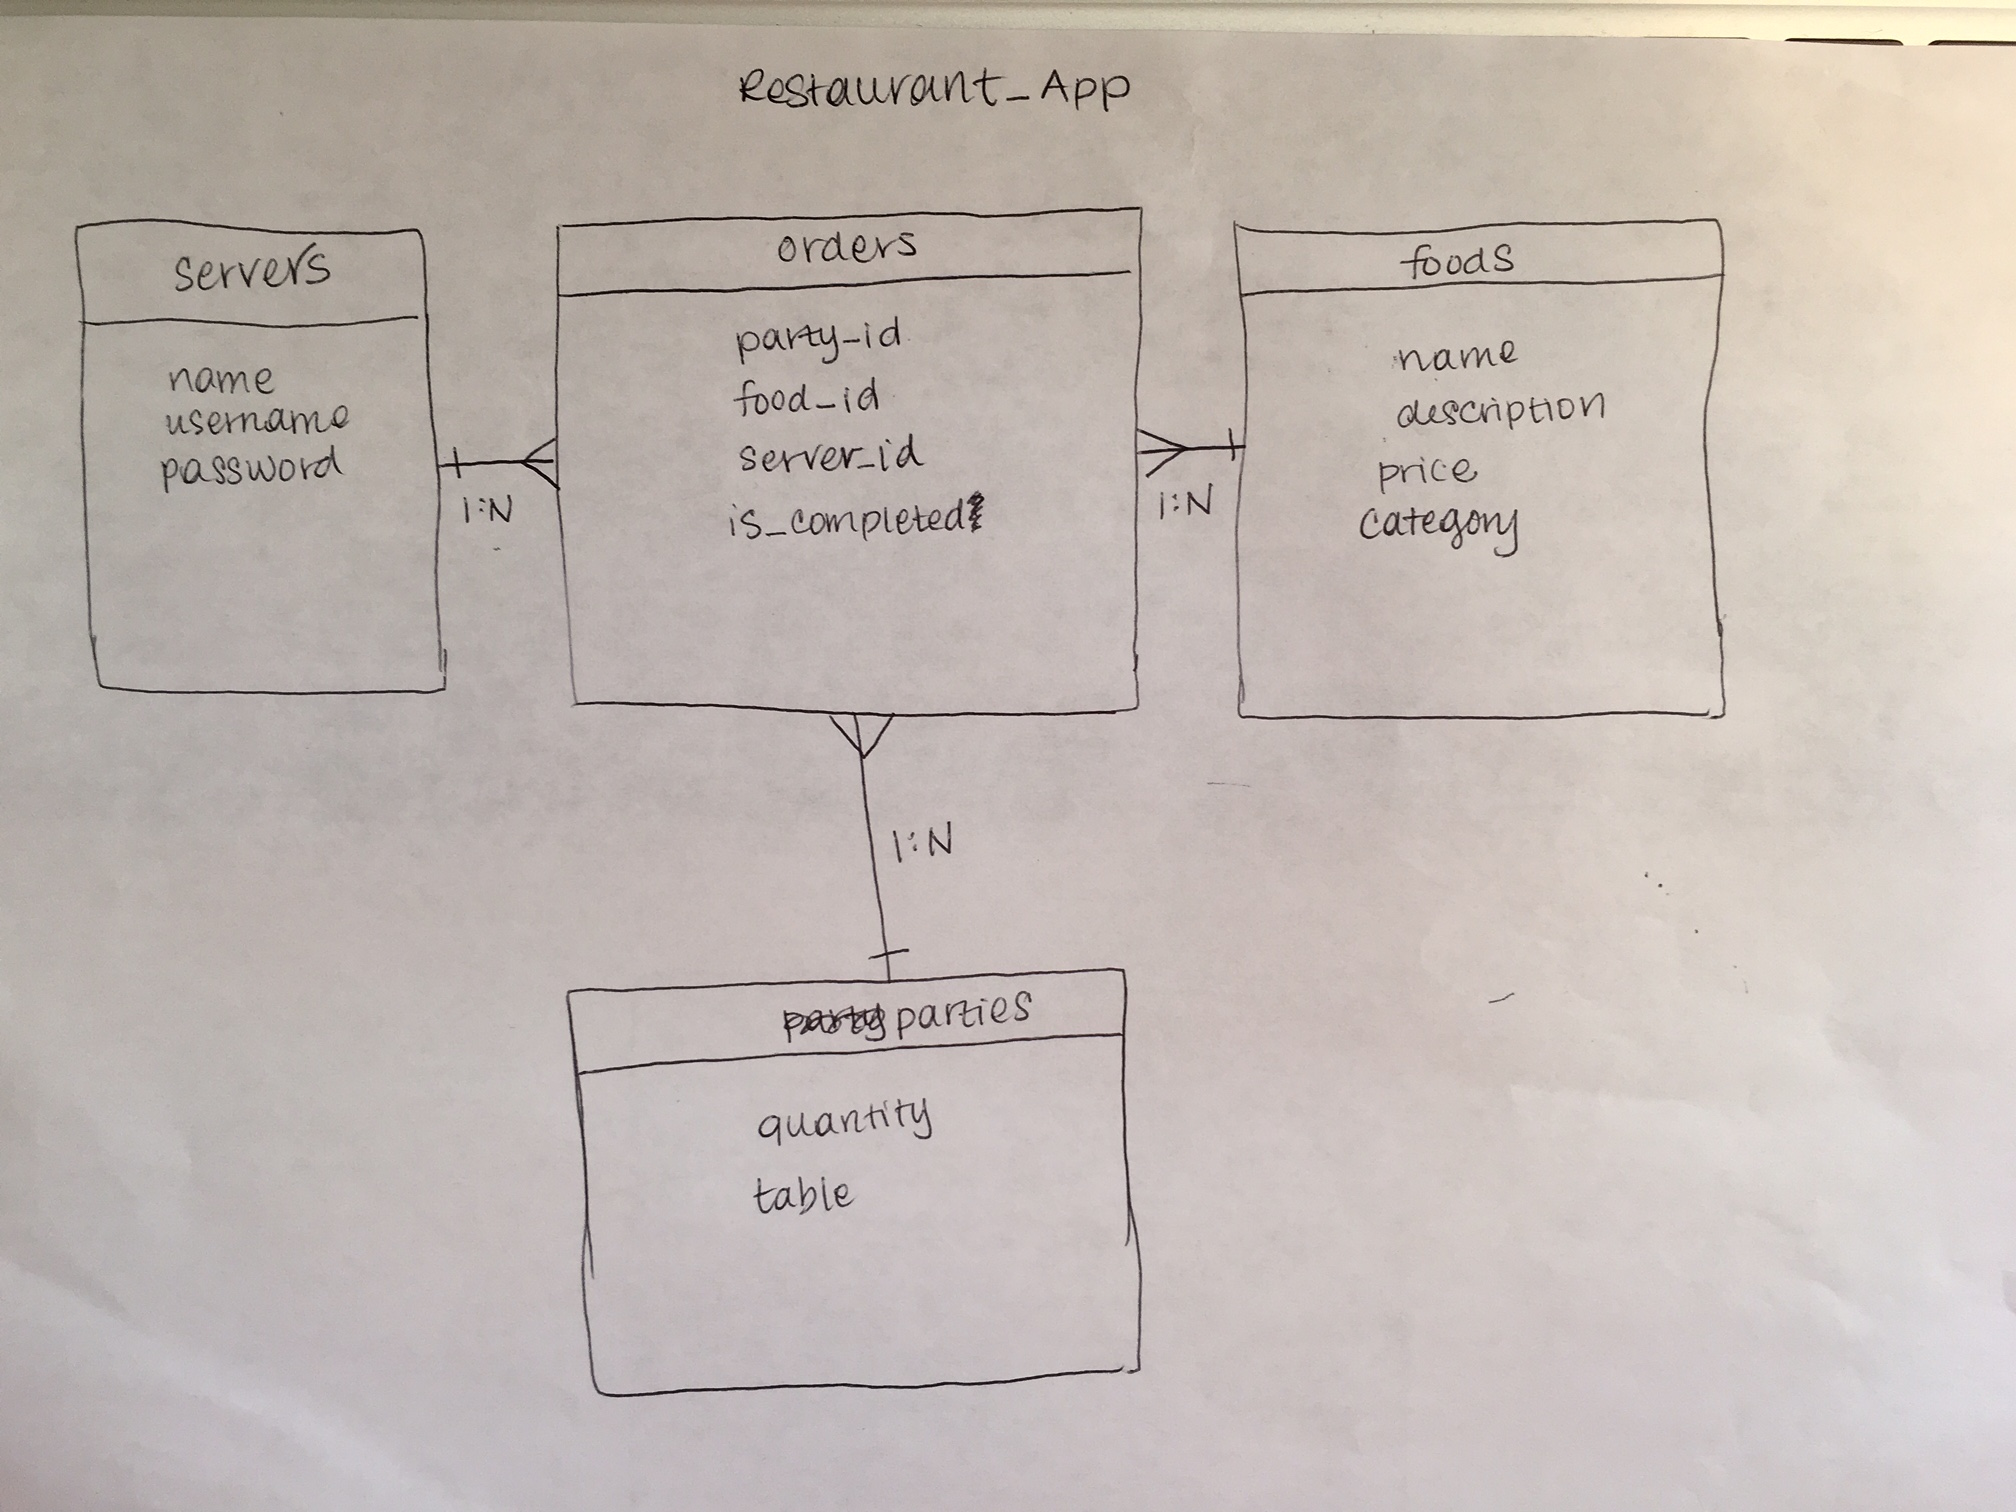 Restaurant_App
servers
name
username
password
1:N
orders
party_id
food_id
server_id
is_completed
1:N
foods
name
description
price
category
1:N
party parties
quantity
table